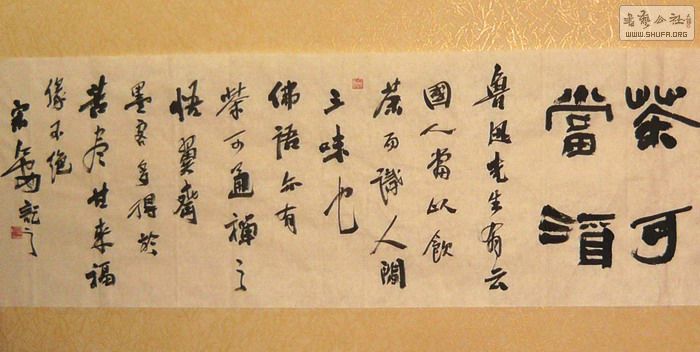 茶可
當酒
魯迅先生有云
國人當以飲
茶而識人間
三味也
佛語亦有
茶可通禪之
悟翼齋
墨君多得於
苦盡甘來福
緣不絕
記之
书艺公社
WWW.SHUFA.ORG